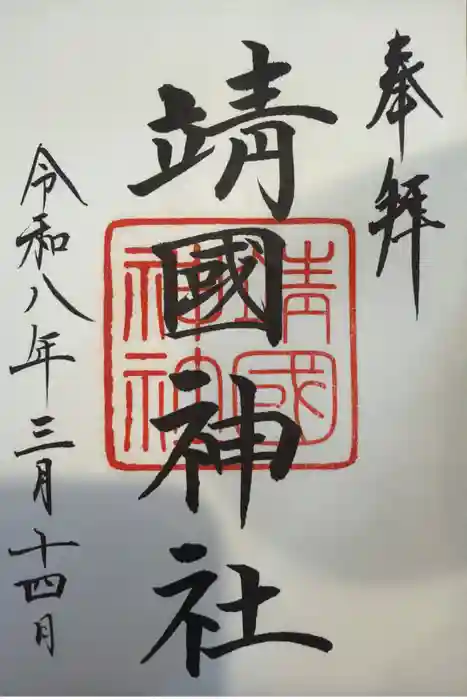 奉拝
靖國神社
靖國
神社
令和八年三月十四月